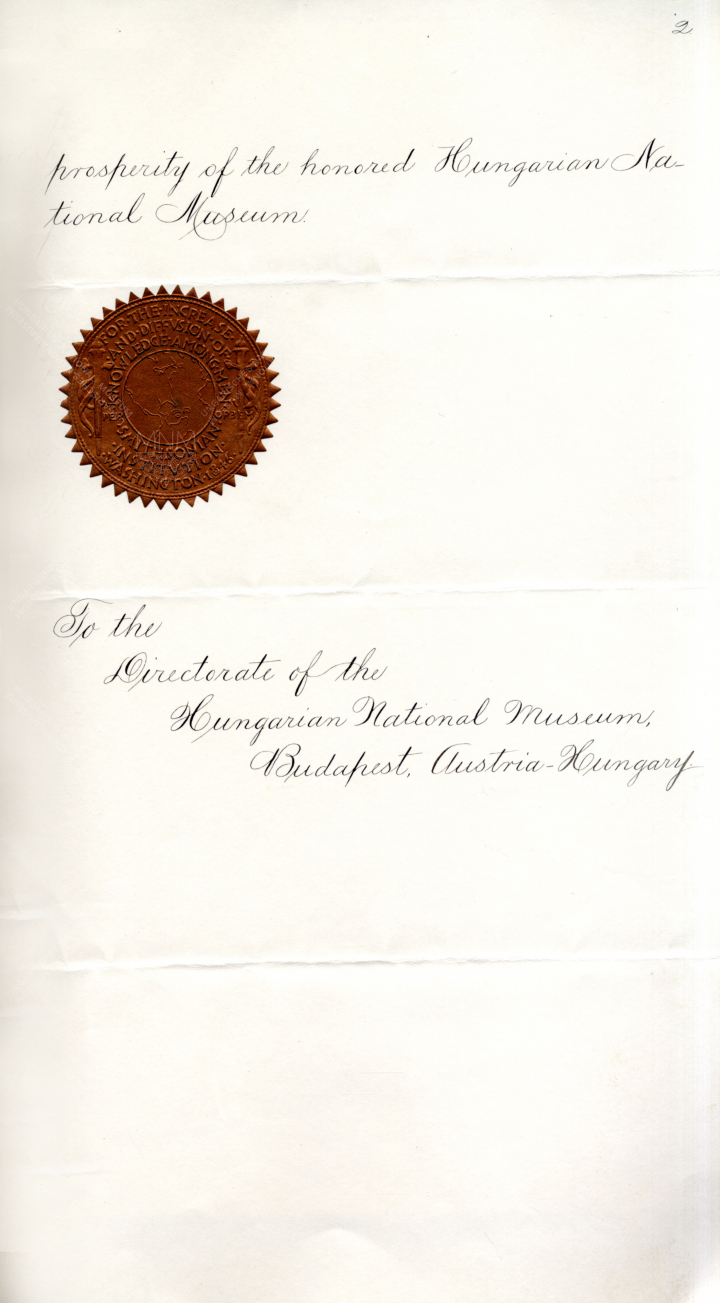 2
prosperity of the honored Hungarian Na-
tional Museum.
FOR·THE·INCREASE
AND·DIFFVSION·OF
KNOWLEDGE·AMONG·MEN
PER ORBEM
·SMITHSONIAN·
·INSTITVTION·
·WASHINGTON·1846·
To the
Directorate of the
Hungarian National Museum,
Budapest, Austria-Hungary